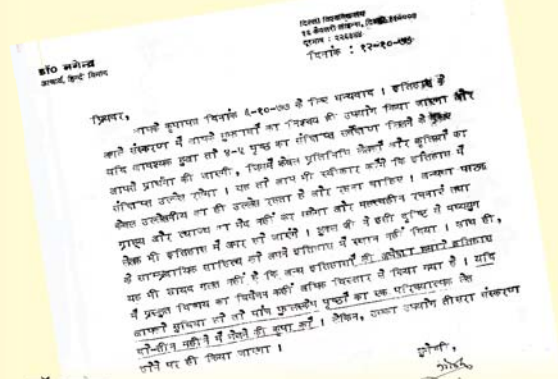 दिल्ली विश्वविद्यालय
दिनांक : १२-१०-७७
डॉ० नगेन्द्र
आचार्य, हिन्दी विभाग
प्रियवर,
आपके कृपापत्र दिनांक ६-१०-७७ के लिए धन्यवाद । इतिहास के
अगले संस्करण में आपके सुझावों का निश्चय ही उपयोग किया जाएगा और
यदि आवश्यक हुआ तो ४-५ पृष्ठ का संक्षिप्त सर्वेक्षण लिखने के लिए
आपसे प्रार्थना की जाएगी, जिसमें केवल प्रतिनिधि लेखकों और कृतियों का
संक्षिप्त उल्लेख होगा । यह तो आप भी स्वीकार करेंगे कि इतिहास में
केवल उल्लेखनीय का ही उल्लेख रहता है और रहना चाहिए । अन्यथा पाठक
ग्राह्य और त्याज्य का भेद नहीं कर सकेगा और महत्वहीन रचनाएं तथा
लेखक भी इतिहास में अमर हो जाएंगे । शुक्ल जी ने इसी दृष्टि से मध्ययुग
के साम्प्रदायिक साहित्य को अपने इतिहास में स्थान नहीं दिया । साथ ही,
यह भी शायद गलत नहीं है कि अन्य इतिहासों की अपेक्षा हमारे इतिहास
में प्रस्तुत विषय का विवेचन कहीं अधिक विस्तार से किया गया है । यदि
आपको सुविधा हो तो पांच फुलस्केप पृष्ठों का एक परिचयात्मक लेख
दो-तीन महीने में भेजने की कृपा करें । लेकिन, उसका उपयोग तीसरा संस्करण
होने पर ही किया जाएगा ।